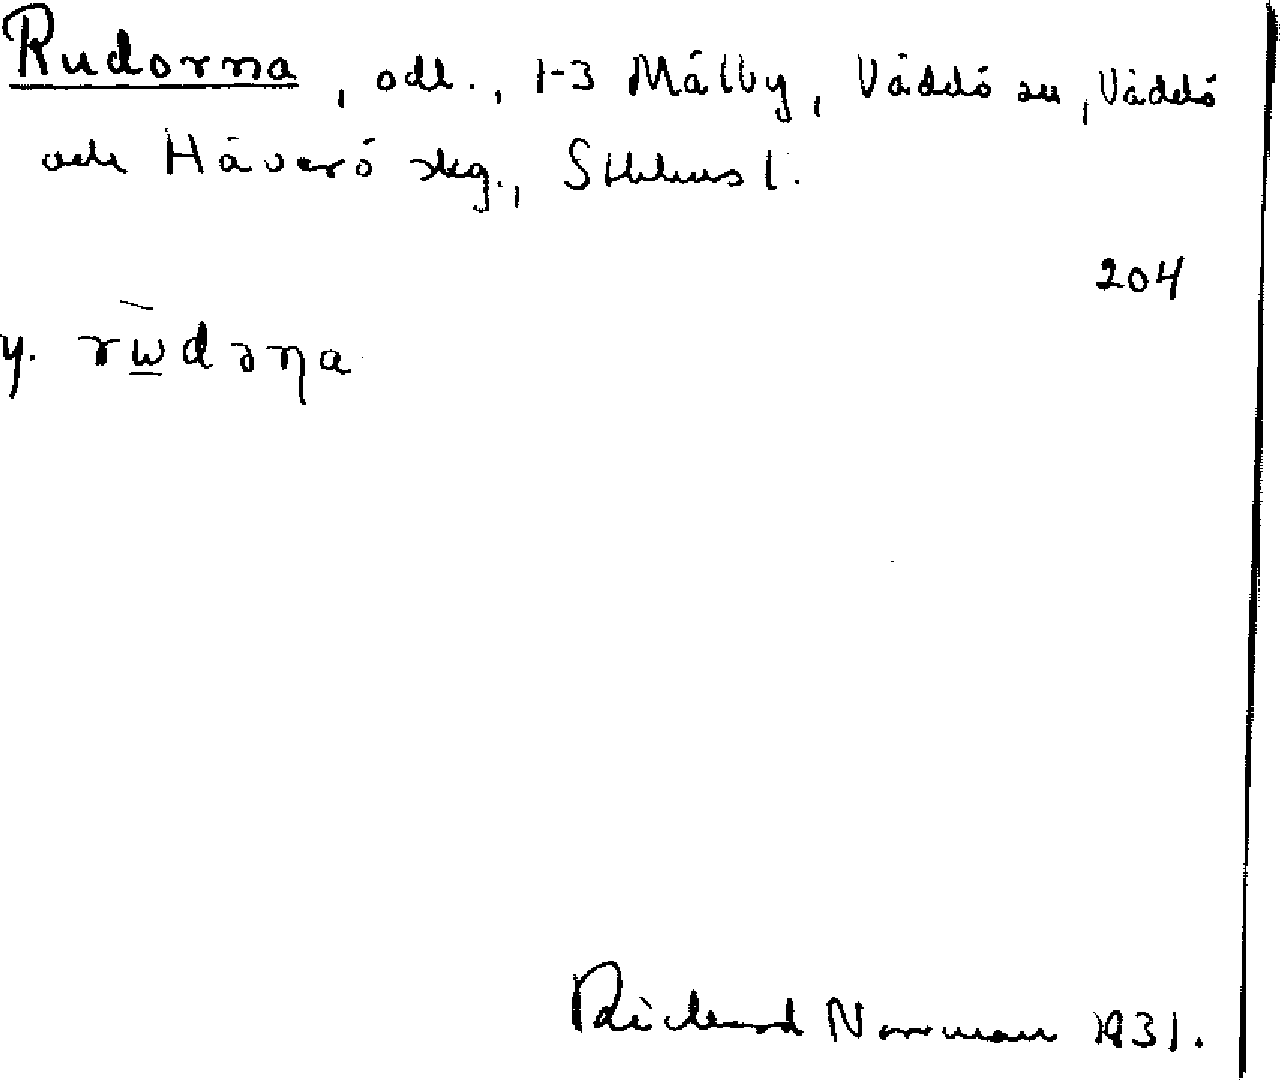 Rudorna, odl., 1-3 Mälby, Väddö sn, Väddö
och Häverö skg., Sthlms l.
204
y. rѡ̀dəɳa
Rickard Norrman 1931.